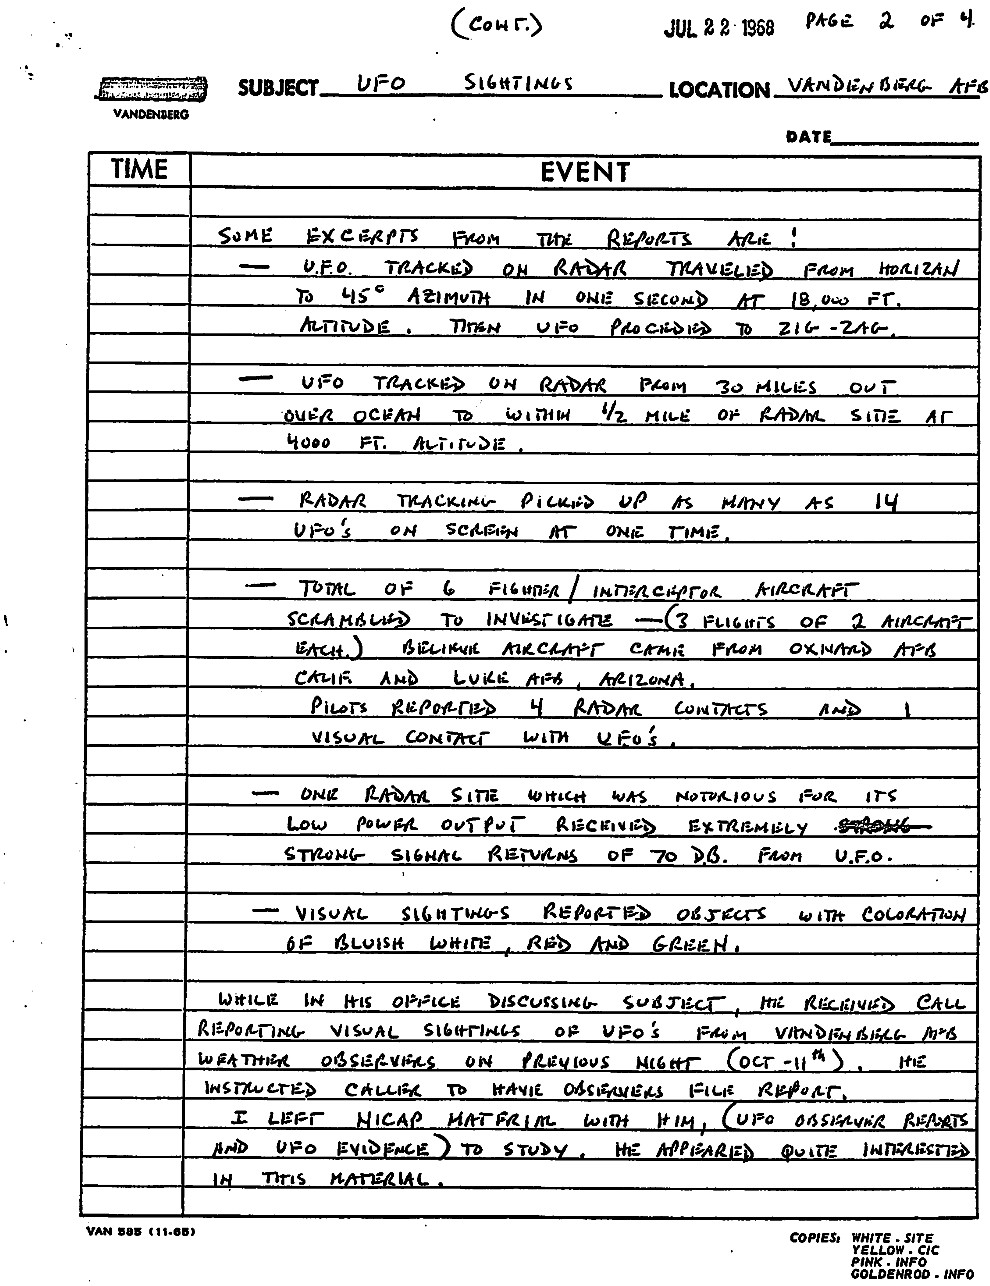 (CONT.) JUL 22 1968 PAGE 2 OF 4
SUBJECT UFO SIGHTINGS LOCATION VANDENBERG AFB
VANDENBERG
DATE
TIME EVENT
SOME EXCERPTS FROM THE REPORTS ARE!
— U.F.O. TRACKED ON RADAR TRAVELED FROM HORIZAN
TO 45° AZIMUTH IN ONE SECOND AT 18,000 FT.
ALTITUDE. THEN UFO PROCEDED TO ZIG-ZAG.
— UFO TRACKED ON RADAR FROM 30 MILES OUT
OVER OCEAN TO WITHIN 1/2 MILE OF RADAR SITE AT
4000 FT. ALTITUDE.
— RADAR TRACKING PICKED UP AS MANY AS 14
UFO'S ON SCREEN AT ONE TIME.
— TOTAL OF 6 FIGHTER/INTERCEPTOR AIRCRAFT
SCRAMBLED TO INVESTIGATE —(3 FLIGHTS OF 2 AIRCRAFT
EACH.) BELIEVE AIRCRAFT CAME FROM OXNARD AFB
CALIF. AND LUKE AFB, ARIZONA.
PILOTS REPORTED 4 RADAR CONTACTS AND 1
VISUAL CONTACT WITH UFO'S.
— ONE RADAR SITE WHICH WAS NOTORIOUS FOR ITS
LOW POWER OUTPUT RECEIVED EXTREMELY STRONG
STRONG SIGNAL RETURNS OF 70 DB. FROM U.F.O.
— VISUAL SIGHTINGS REPORTED OBJECTS WITH COLORATION
OF BLUISH WHITE, RED AND GREEN.
WHILE IN HIS OFFICE DISCUSSING SUBJECT, HE RECEIVED CALL
REPORTING VISUAL SIGHTINGS OF UFO'S FROM VANDENBERG AFB
WEATHER OBSERVERS ON PREVIOUS NIGHT (OCT-11th). HE
INSTRUCTED CALLER TO HAVE OBSERVERS FILE REPORT.
I LEFT NICAP MATERIAL WITH HIM, (UFO OBSERVER REPORTS
AND UFO EVIDENCE) TO STUDY. HE APPEARED QUITE INTERESTED
IN THIS MATERIAL.
VAN 585 (11-65)
COPIES: WHITE - SITE
YELLOW - CIC
PINK - INFO
GOLDENROD - INFO